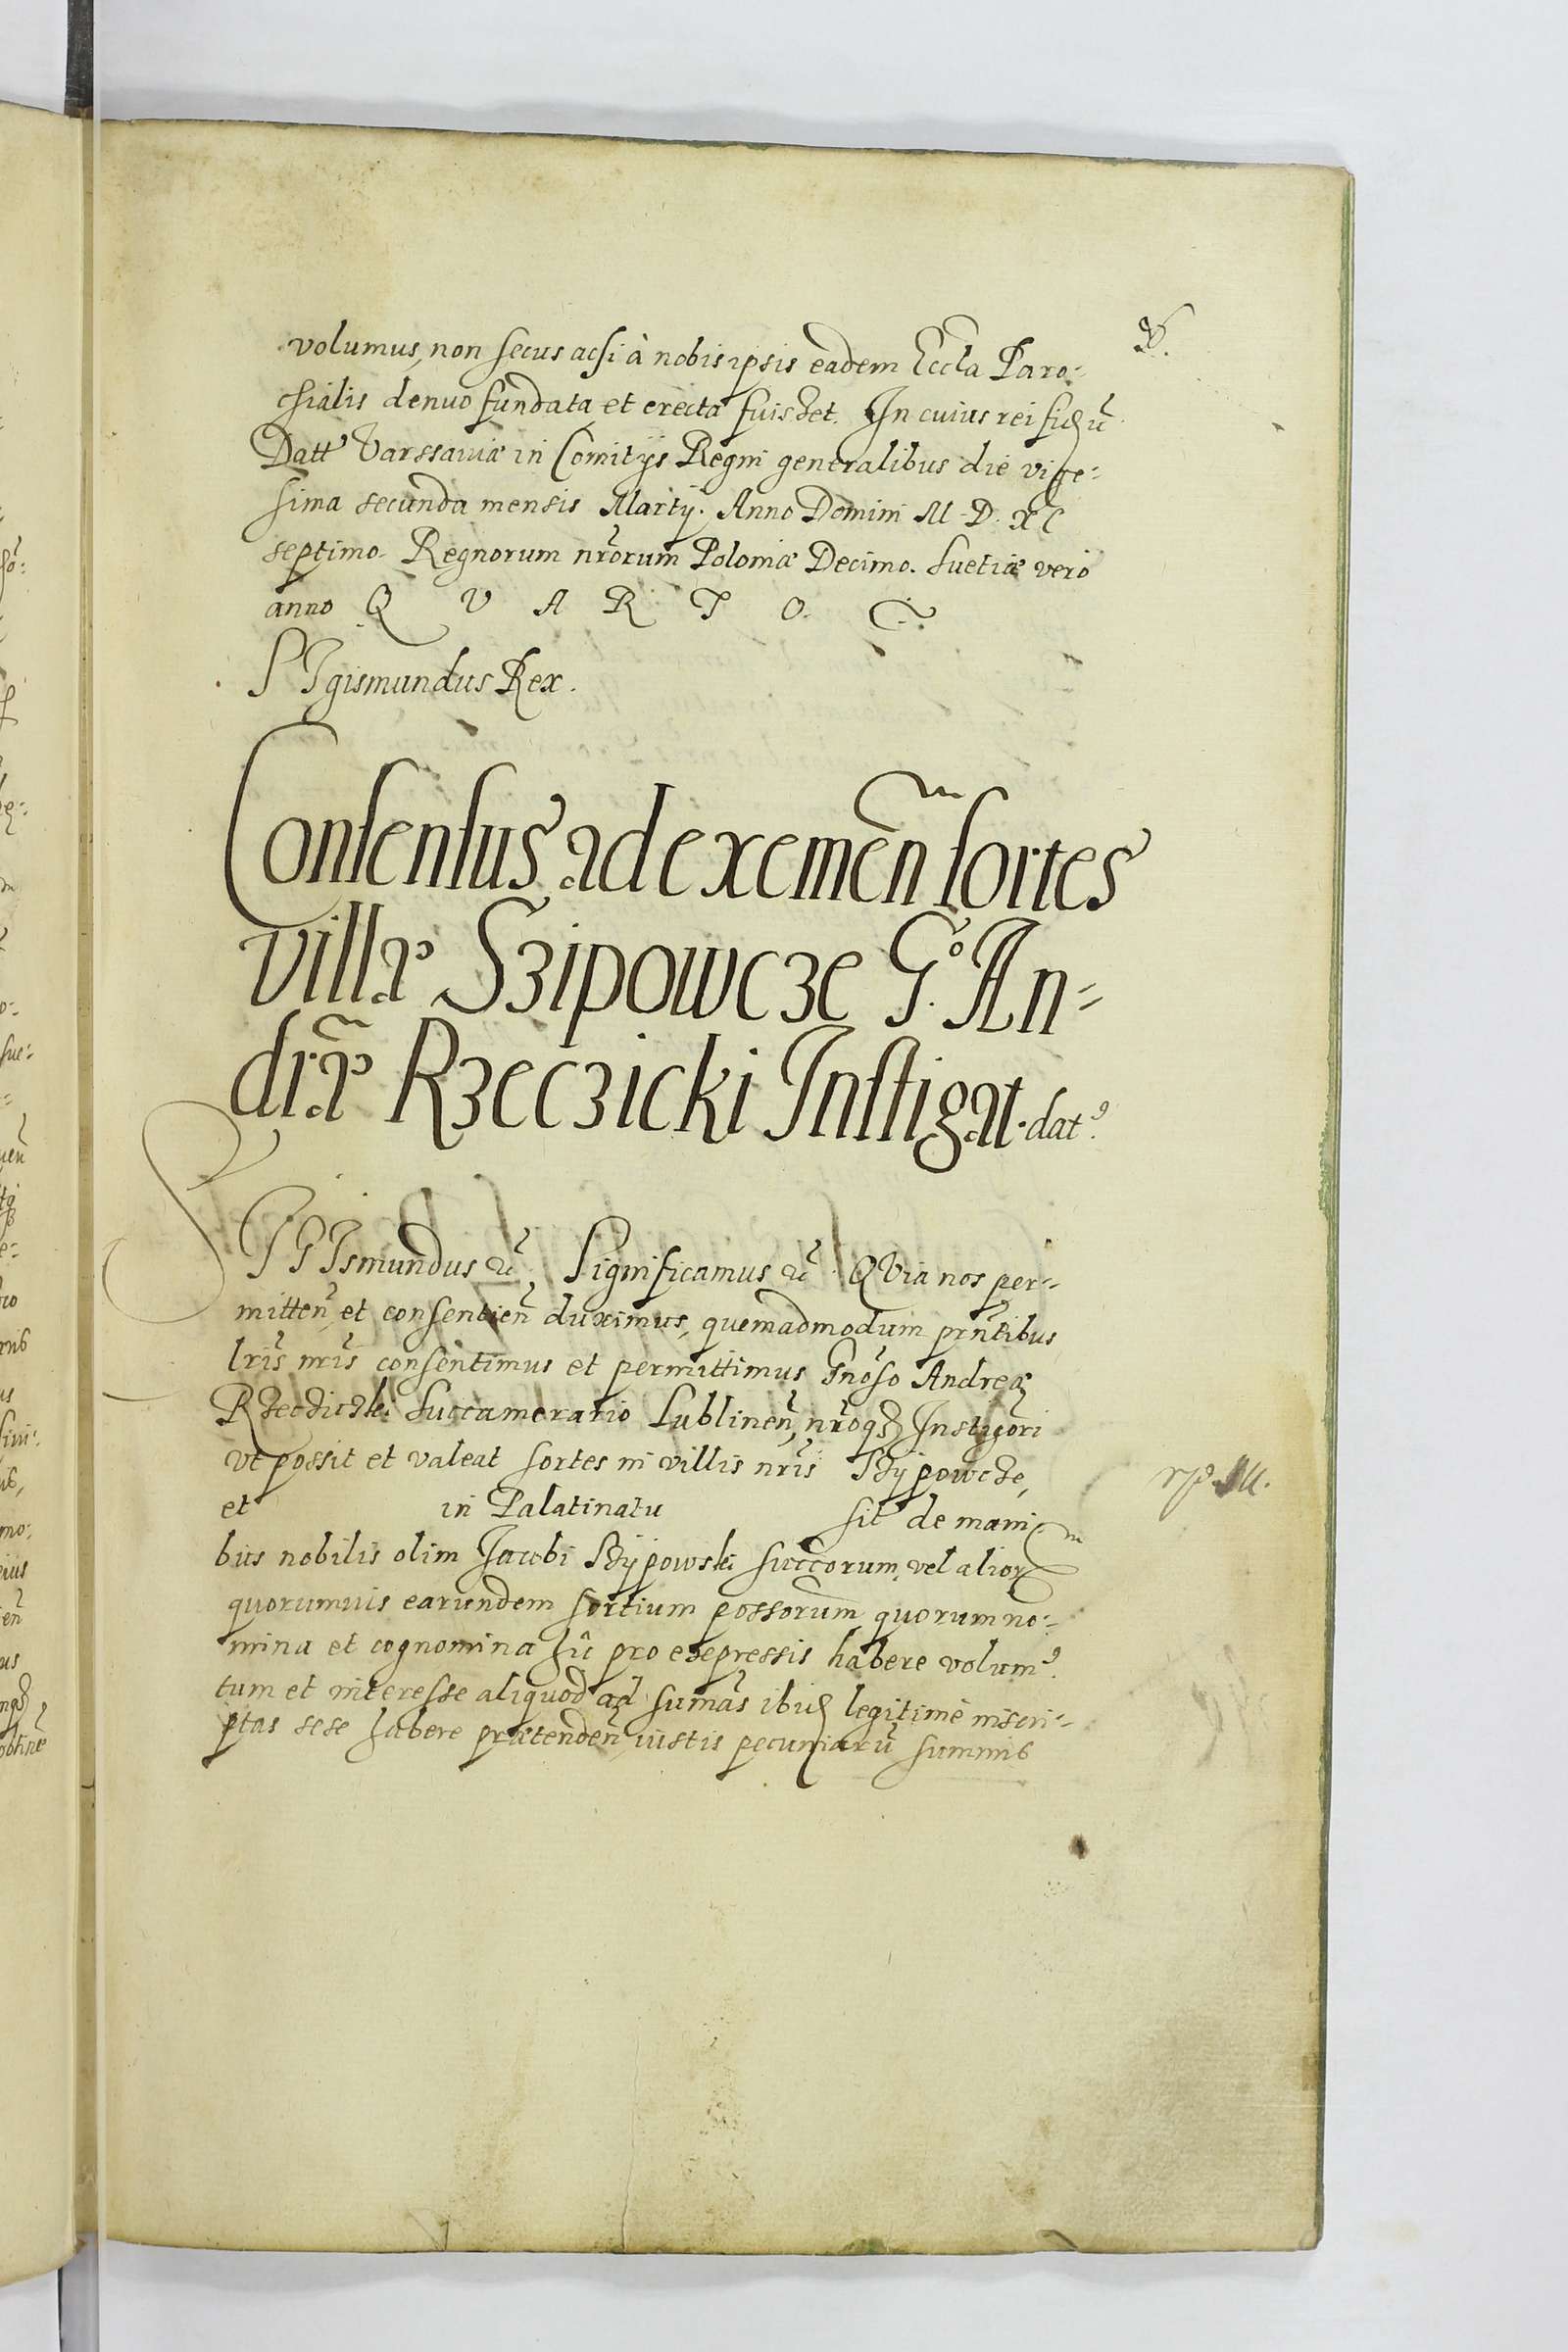 volumus, non secus acsi à nobis ipsis eadem Eccla Paro-
chialis denuo fundata et erecta fuisset. In cuius rei fid ũ
Datt Varssaviæ in Comitijs Regni generalibus die vige-
sima secunda mensis Martij. Anno Domini M. D. XC
septimo. Regnorum nrorum Poloniæ Decimo. Suetiæ vero
anno Q V A R T O.
SIgismundus Rex.
Consensus ad exemen sortes
villæ Szipowcze G.º An-
dræ Rzeczicki Instigat. dat9.
SIGIsmundus Significamus QVia nos per-
mitten et consentien duximus, quemadmodum prntibus
lris nris consentimus et permittimus Gnoso Andreæ
Rzeczickei Succamerario Lublinen, nroq3 Instigori
vt possit et valeat sortes in villis nris Szÿpowcze,
et in Palatinatu sit de mani
bus nobilis olim Jacobi Szÿpowski succorum, vel alior
quorumvis earundem sortium possorum quorum no-
mina et cognomina hic pro expressis habere volum9.
tum et interesse aliquod ad sumas ibid legitime inscri-
ptas sese habere prætenden, iustis pecuniarũ summis